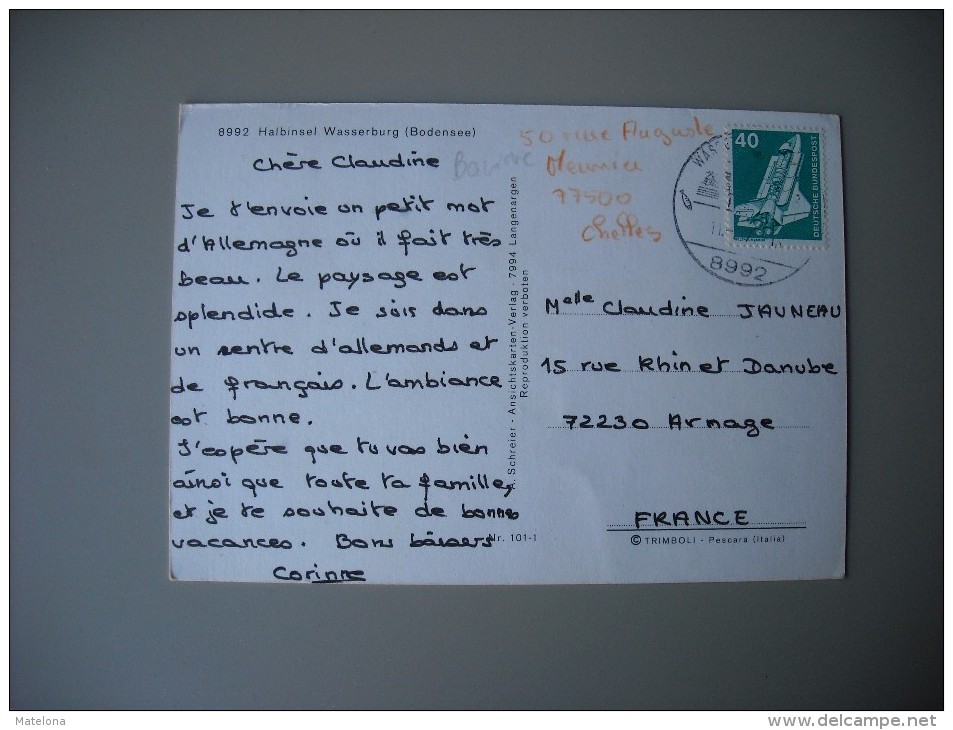 8992 Halbinsel Wasserburg (Bodensee)
Chère Claudine
Je t'envoie un petit mot
d'Allemagne où il fait très
beau. Le paysage est
splendide. Je suis dans
un sentre d'allemands et
de français. L'ambiance
est bonne.
J'espère que tu vas bien
ainsi que toute ta famille,
et je te souhaite de bonnes
vacances. Bons baisers
Corinne
A. Schreier - Ansichtskarten-Verlag - 7994 Langenargen
Reproduktion verboten
Nr. 101-1
50 rue Auguste
Meunier
77500
Chelles
40
DEUTSCHE BUNDESPOST
8992
Melle Claudine JAUNEAU
15 rue Rhin et Danube
72230 Arnage
FRANCE
© TRIMBOLI - Pescara (Italia)
Matelona
www.delcampe.net